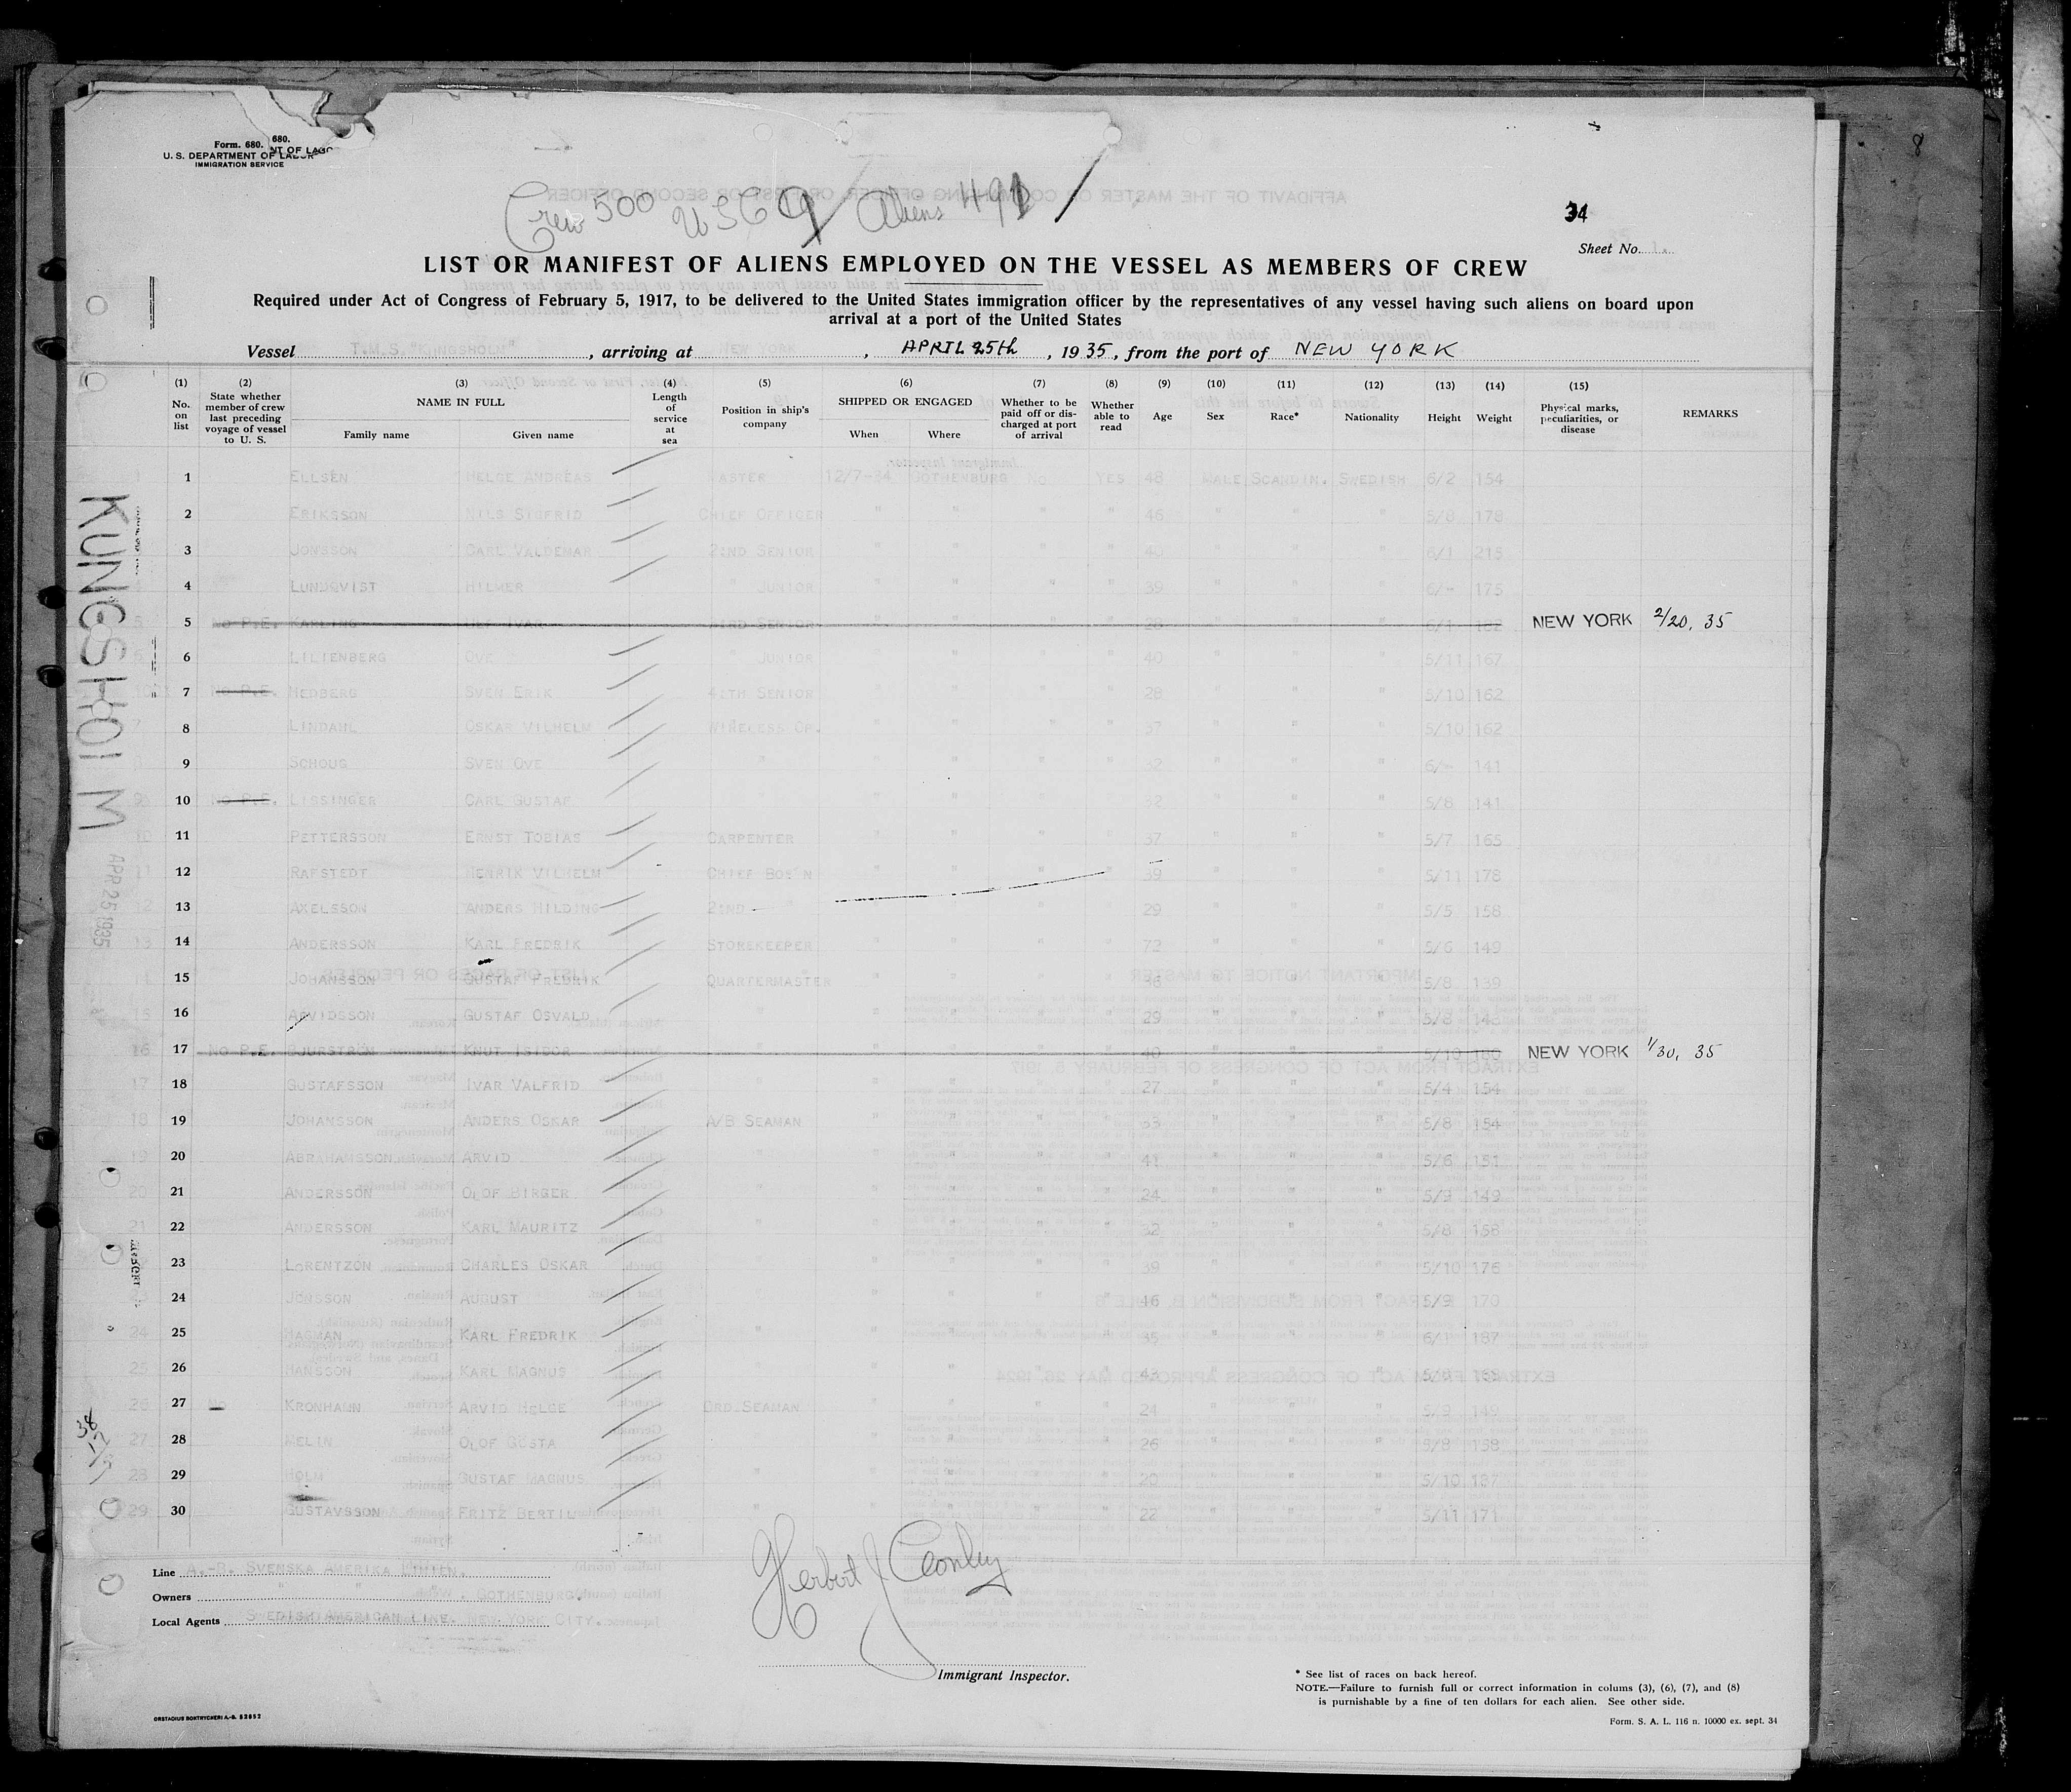 Form. 680. 680.
U. S. DEPARTMENT OF LABOR
IMMIGRATION SERVICE
Crew 500 USC 9 Aliens 491
34
Sheet No. 1.
LIST OR MANIFEST OF ALIENS EMPLOYED ON THE VESSEL AS MEMBERS OF CREW
Required under Act of Congress of February 5, 1917, to be delivered to the United States immigration officer by the representatives of any vessel having such aliens on board upon
arrival at a port of the United States
Vessel T.M.S. "KUNGSHOLM", arriving at NEW YORK, APRIL 25th, 1935, from the port of NEW YORK
(1) No. on list (2) State whether member of crew last preceding voyage of vessel to U. S. (3) NAME IN FULL Family name Given name (4) Length of service at sea (5) Position in ship's company (6) SHIPPED OR ENGAGED When Where (7) Whether to be paid off or discharged at port of arrival (8) Whether able to read (9) Age (10) Sex (11) Race* (12) Nationality (13) Height (14) Weight (15) Physical marks, peculiarities, or disease REMARKS
1 ELLSEN HELGE ANDREAS MASTER 12/7-34 GOTHENBURG NO YES 48 MALE SCANDIN. SWEDISH 6/2 154
2 ERIKSSON NILS SIGFRID CHIEF OFFICER " " " " 46 " " " 5/8 178
3 JONSSON CARL VALDEMAR 2:ND SENIOR " " " " 40 " " " 6/1 213
4 LUNDQVIST HILMER " JUNIOR " " " " 39 " " " 6/- 175
5 NO P.E. KARLING IVAR 3:RD SENIOR " " " " 28 " " " 6/1 NEW YORK 2/20, 35
6 LILIENBERG OVE " JUNIOR " " " " 40 " " " 5/11 167
7 NO P.E. HEDBERG SVEN ERIK 4:TH SENIOR " " " " 28 " " " 5/10 162
8 LINDAHL OSKAR VILHELM WIRELESS OP. " " " " 37 " " " 5/10 162
9 SCHOUG SVEN OVE " " " " " 32 " " " 6/- 141
10 NO P.E. LISSINGER CARL GUSTAF " " " " " 32 " " " 5/8 141
11 PETTERSSON ERNST TOBIAS CARPENTER " " " " 37 " " " 5/7 165
12 RAFSTEDT HENRIK VILHELM CHIEF BOS'N " " " " 39 " " " 5/11 178
13 AXELSSON ANDERS HILDING 2:ND " " " " " 29 " " " 5/5 158
14 ANDERSSON KARL FREDRIK STOREKEEPER " " " " 72 " " " 5/6 149
15 JOHANSSON GUSTAF FREDRIK QUARTERMASTER " " " " 36 " " " 5/8 139
16 ARVIDSSON GUSTAF OSVALD " " " " " 29 " " " 5/8
17 NO P.E. BJURSTRÖM KNUT ISIDOR " " " " " 40 " " " 5/10 NEW YORK 1/30, 35
18 GUSTAFSSON IVAR VALFRID " " " " " 27 " " " 5/4 154
19 JOHANSSON ANDERS OSKAR A/B SEAMAN " " " " 33 " " " 5/8 154
20 ABRAHAMSSON ARVID " " " " " 41 " " " 5/6 151
21 ANDERSSON OLOF BIRGER " " " " " 24 " " " 5/9 149
22 ANDERSSON KARL MAURITZ " " " " " 32 " " " 5/8 158
23 LORENTZON CHARLES OSKAR " " " " " 39 " " " 5/10 176
24 JONSSON AUGUST " " " " " 46 " " " 5/9 170
25 HAGMAN KARL FREDRIK " " " " " 35 " " " 6/1 187
26 HANSSON KARL MAGNUS " " " " " 43 " " "
27 NO KRONHAMN ARVID HELGE ORD. SEAMAN " " " " 24 " " " 5/9 149
28 MELIN OLOF GÖSTA " " " " " 26 " " " 5/8 158
29 HOLM GUSTAF MAGNUS " " " " " 20 " " " 5/10 187
30 GUSTAVSSON FRITZ BERTIL " " " " " 22 " " " 5/11 171
KUNGSHOLM
APR 25 1935
Line A.-B. SVENSKA AMERIKA LINIEN.
Owners " " " . GOTHENBURG.
Local Agents SWEDISH AMERICAN LINE. NEW YORK CITY.
Herbert J Conley
Immigrant Inspector.
* See list of races on back hereof.
NOTE.—Failure to furnish full or correct information in colums (3), (6), (7), and (8)
is purnishable by a fine of ten dollars for each alien. See other side.
Form. S. A. L. 116 n. 10000 ex. sept. 34